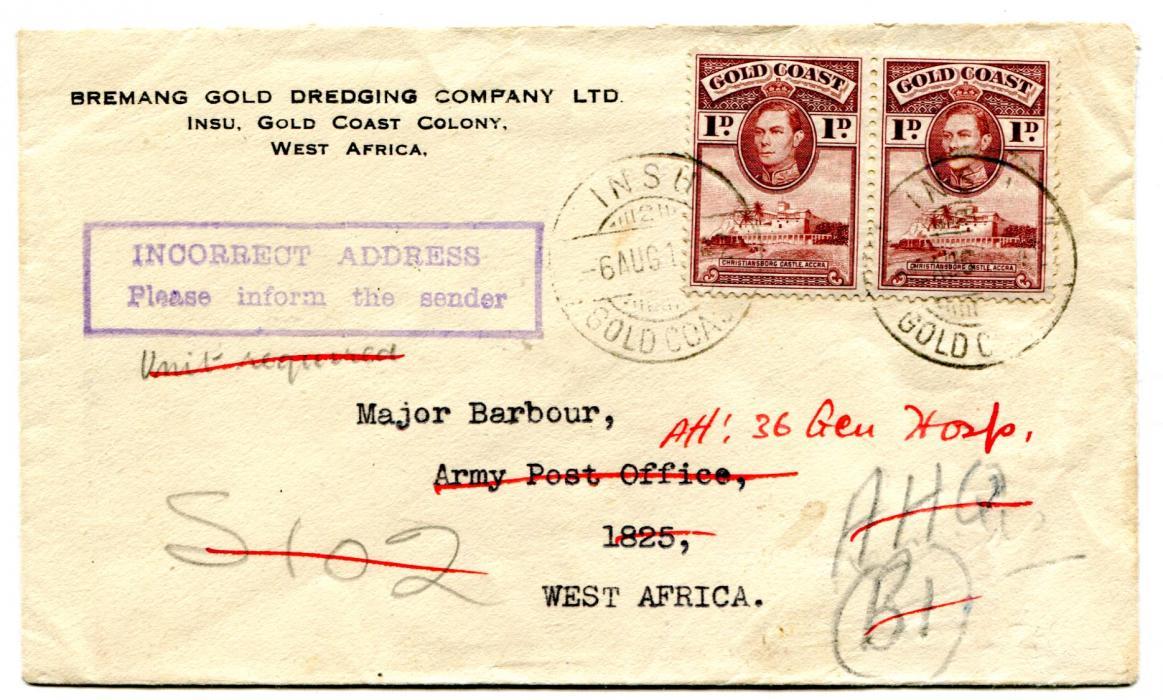 BREMANG GOLD DREDGING COMPANY LTD.
INSU, GOLD COAST COLONY,
WEST AFRICA,
GOLD COAST
1D. 1D.
CHRISTIANSBORG CASTLE, ACCRA
GOLD COAST
1D. 1D.
CHRISTIANSBORG CASTLE, ACCRA
INSU
6 AUG
GOLD COAS
GOLD C
INCORRECT ADDRESS
Please inform the sender
Unit required
Major Barbour,
Att: 36 Gen Hosp.
Army Post Office,
1825,
WEST AFRICA.
S102
A.H.Q.
B1